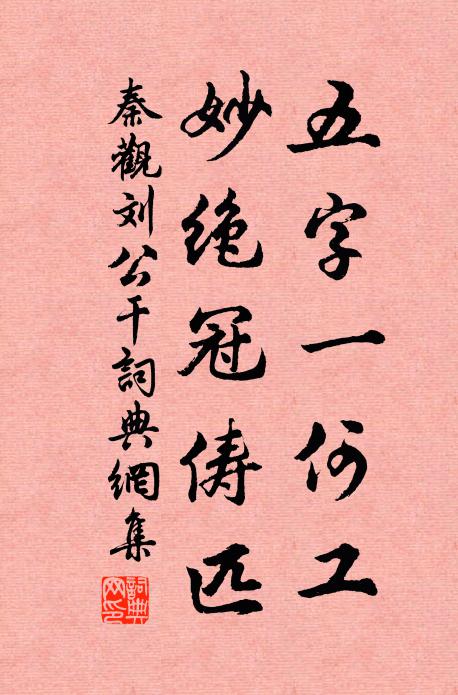 五字一何工
妙绝冠俦匹
秦觀刘公干詞典網集
詞典网印